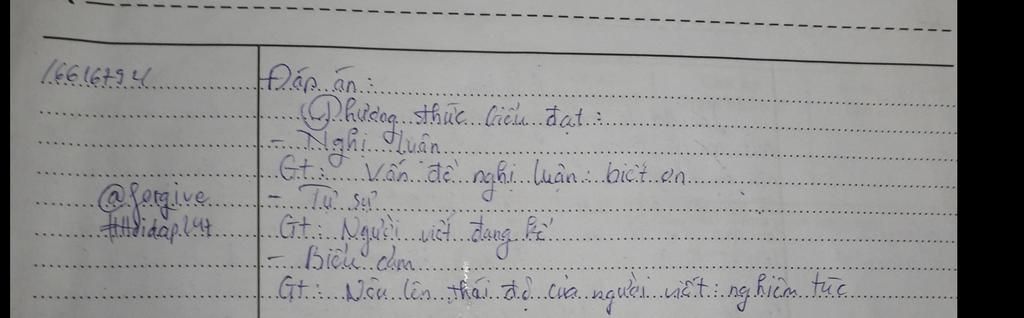 16616794
Đáp án:
Phương thức biểu đạt:
- Nghị luận
Gt: Vấn đề nghị luận: biết ơn
@forgive
- Tự sự
#Hoidap247
Gt: Người viết đang kể
- Biểu cảm
Gt: Nêu lên thái độ của người viết: nghiêm túc